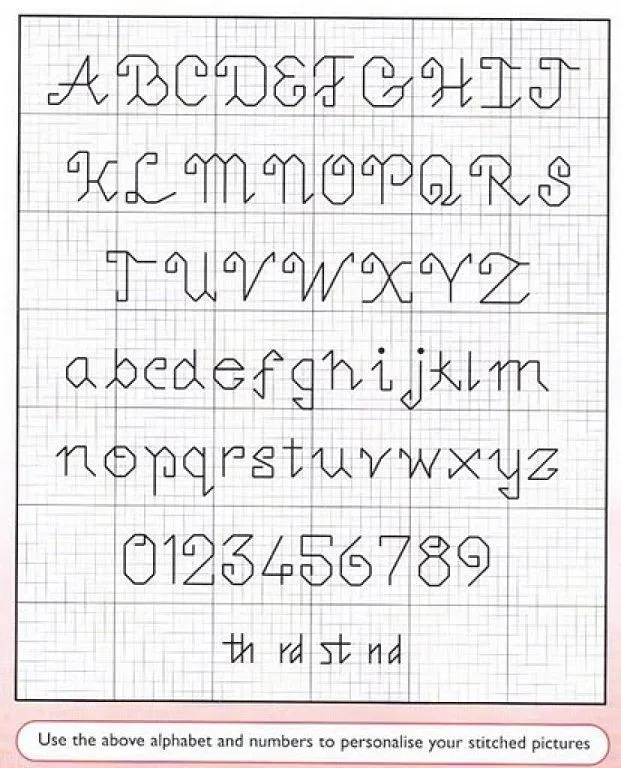 A B C D E F G H I J
K L M N O P Q R S
T U V W X Y Z
a b c d e f g h i j k l m
n o p q r s t u v w x y z
0 1 2 3 4 5 6 7 8 9
th rd st nd
Use the above alphabet and numbers to personalise your stitched pictures